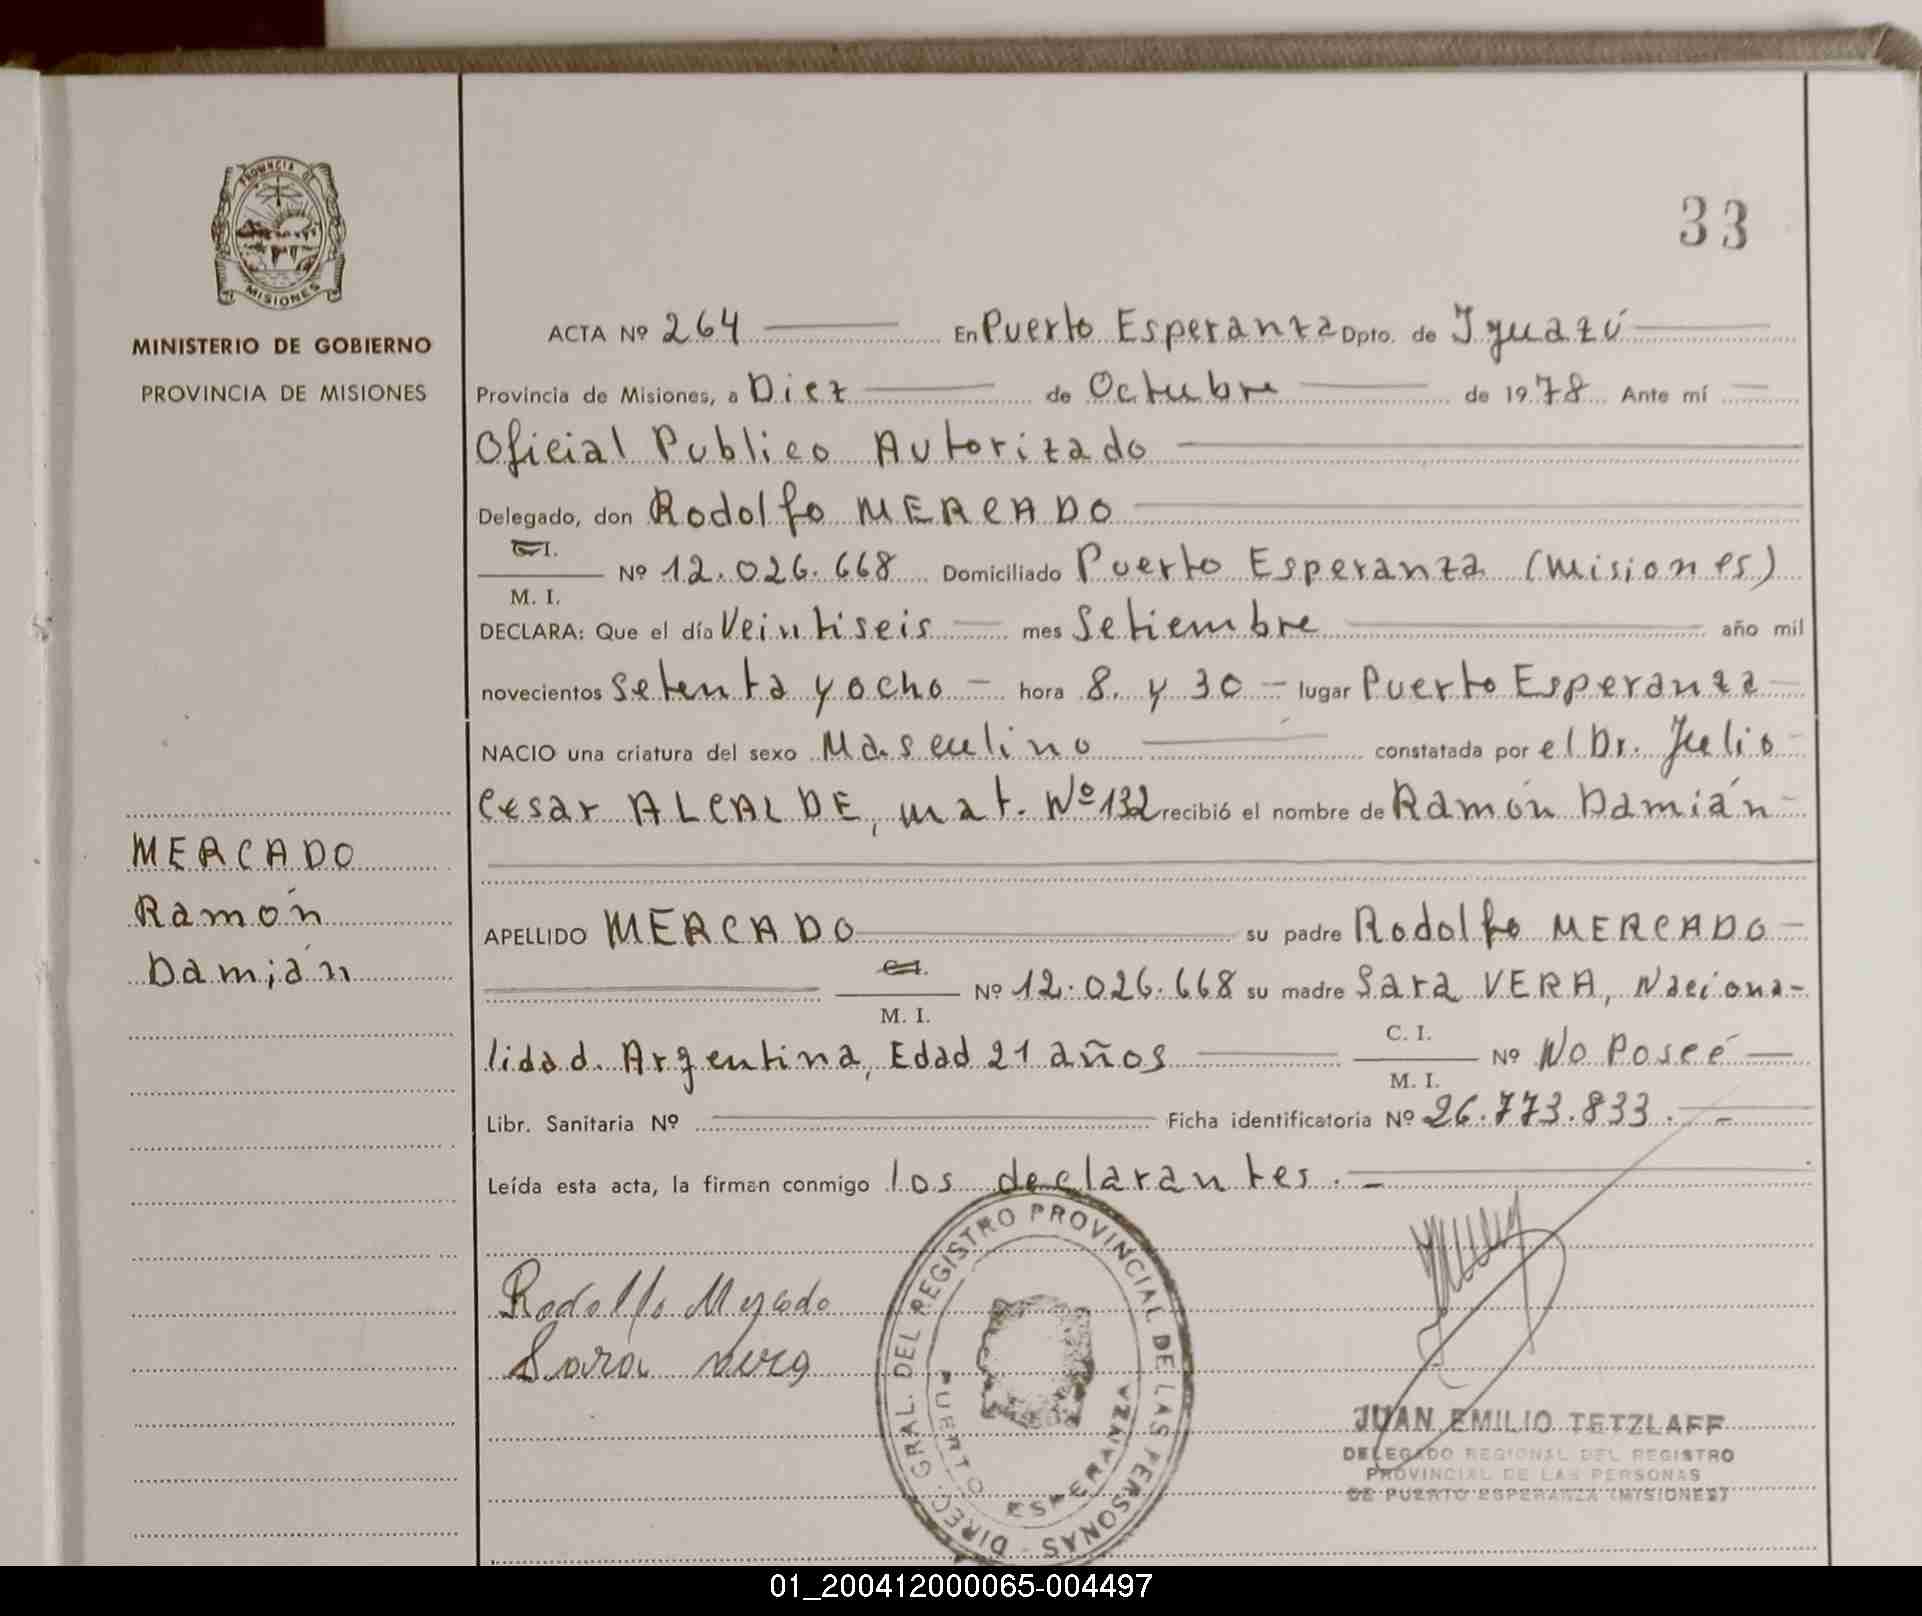 PROVINCIA DE
MISIONES
MINISTERIO DE GOBIERNO
PROVINCIA DE MISIONES
MERCADO
Ramón
Damián
33
ACTA Nº 264 En Puerto Esperanza Dpto. de Iguazú
Provincia de Misiones, a Diez de Octubre de 1978 Ante mí
Oficial Publico Autorizado
Delegado, don Rodolfo MERCADO
C.I.
Nº 12.026.668 Domiciliado Puerto Esperanza (Misiones)
M. I.
DECLARA: Que el día Veintiseis mes Setiembre año mil
novecientos setenta y ocho - hora 8 y 30 - lugar Puerto Esperanza
NACIO una criatura del sexo Masculino constatada por el Dr. Julio
Cesar ALCALDE, mat. Nº 132 recibió el nombre de Ramón Damián -
APELLIDO MERCADO su padre Rodolfo MERCADO -
C.I.
Nº 12.026.668 su madre Sara VERA, Naciona-
M. I.
lidad Argentina, Edad 21 años C. I. Nº No Poseé
M. I.
Libr. Sanitaria Nº Ficha identificatoria Nº 26.773.833. -
Leída esta acta, la firman conmigo los declarantes. -
Rodolfo Mercado
Sara vera
DIREC. GRAL. DEL REGISTRO PROVINCIAL DE LAS PERSONAS -
PUERTO ESPERANZA
JUAN EMILIO TETZLAFF
DELEGADO REGIONAL DEL REGISTRO
PROVINCIAL DE LAS PERSONAS
DE PUERTO ESPERANZA (MISIONES)
01_200412000065-004497